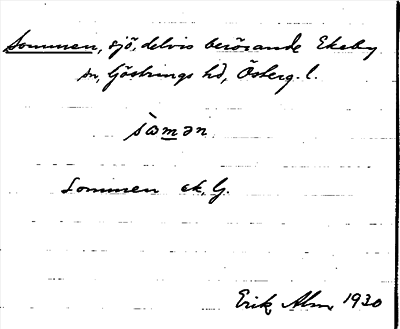 Sommen, sjö, delvis berörande Ekeby
sn, Göstrings hd, Österg. l.
sòmən
Sommen ek. G.
Erik Alm 1930